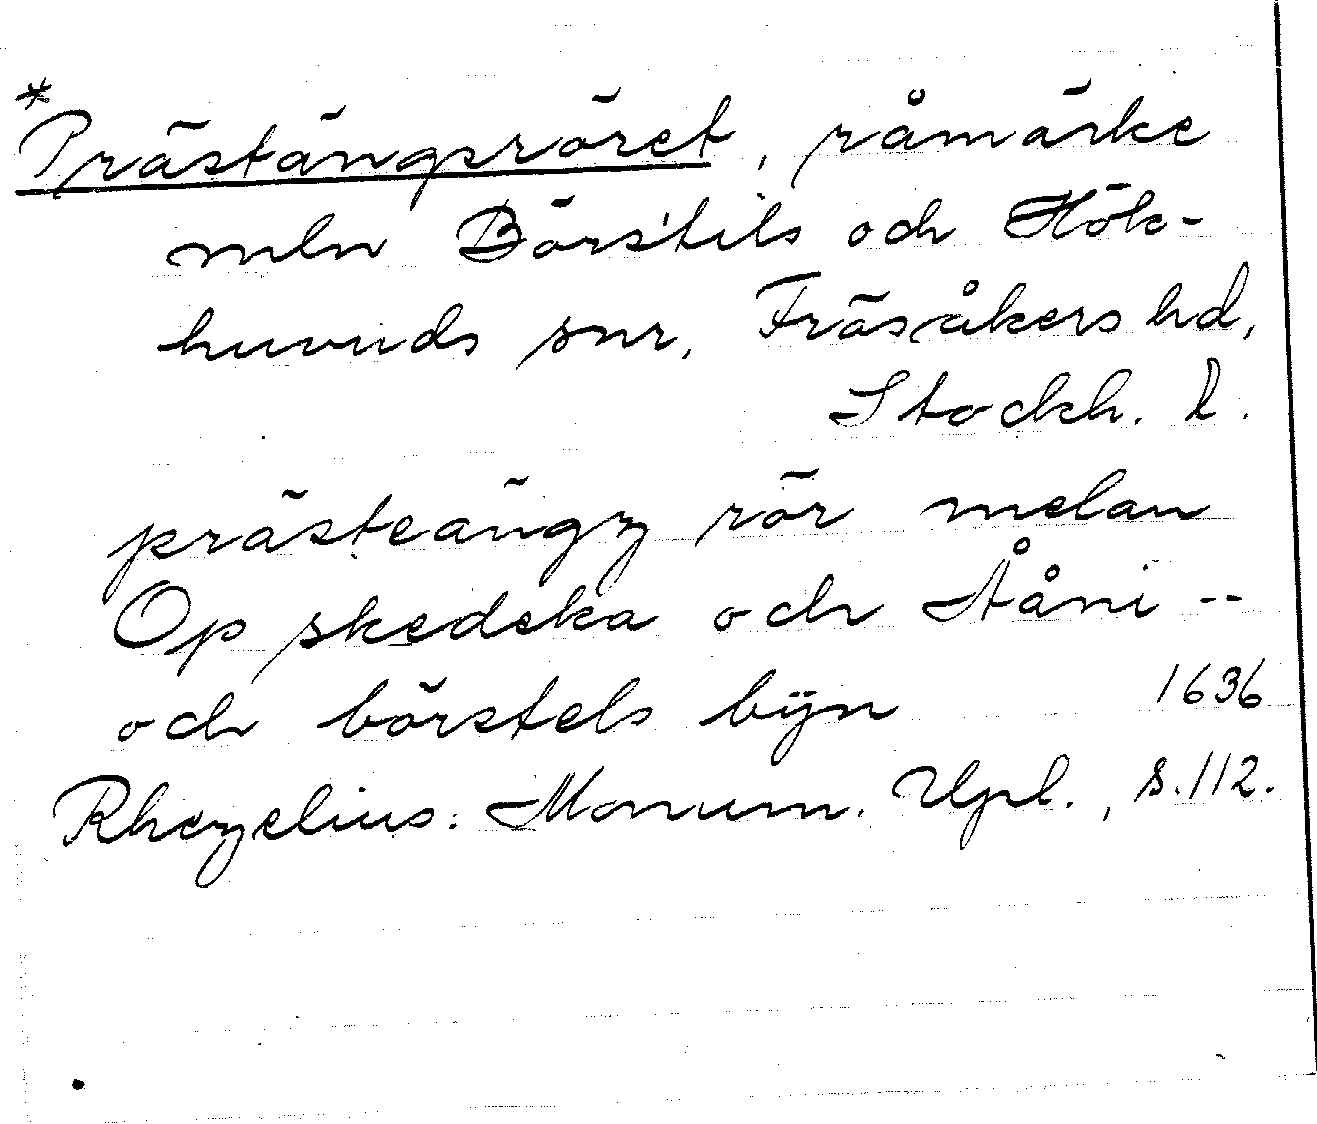 *Prästängsröret, råmärke
mln Börstils och Hök-
huvuds snr, Frösåkers hd,
Stockh. l.
prästeängz rör melan
Op skedeka ochÅåni --
och börstels bÿn 1636
Rhezelius: Monum. Upl., s. 112.